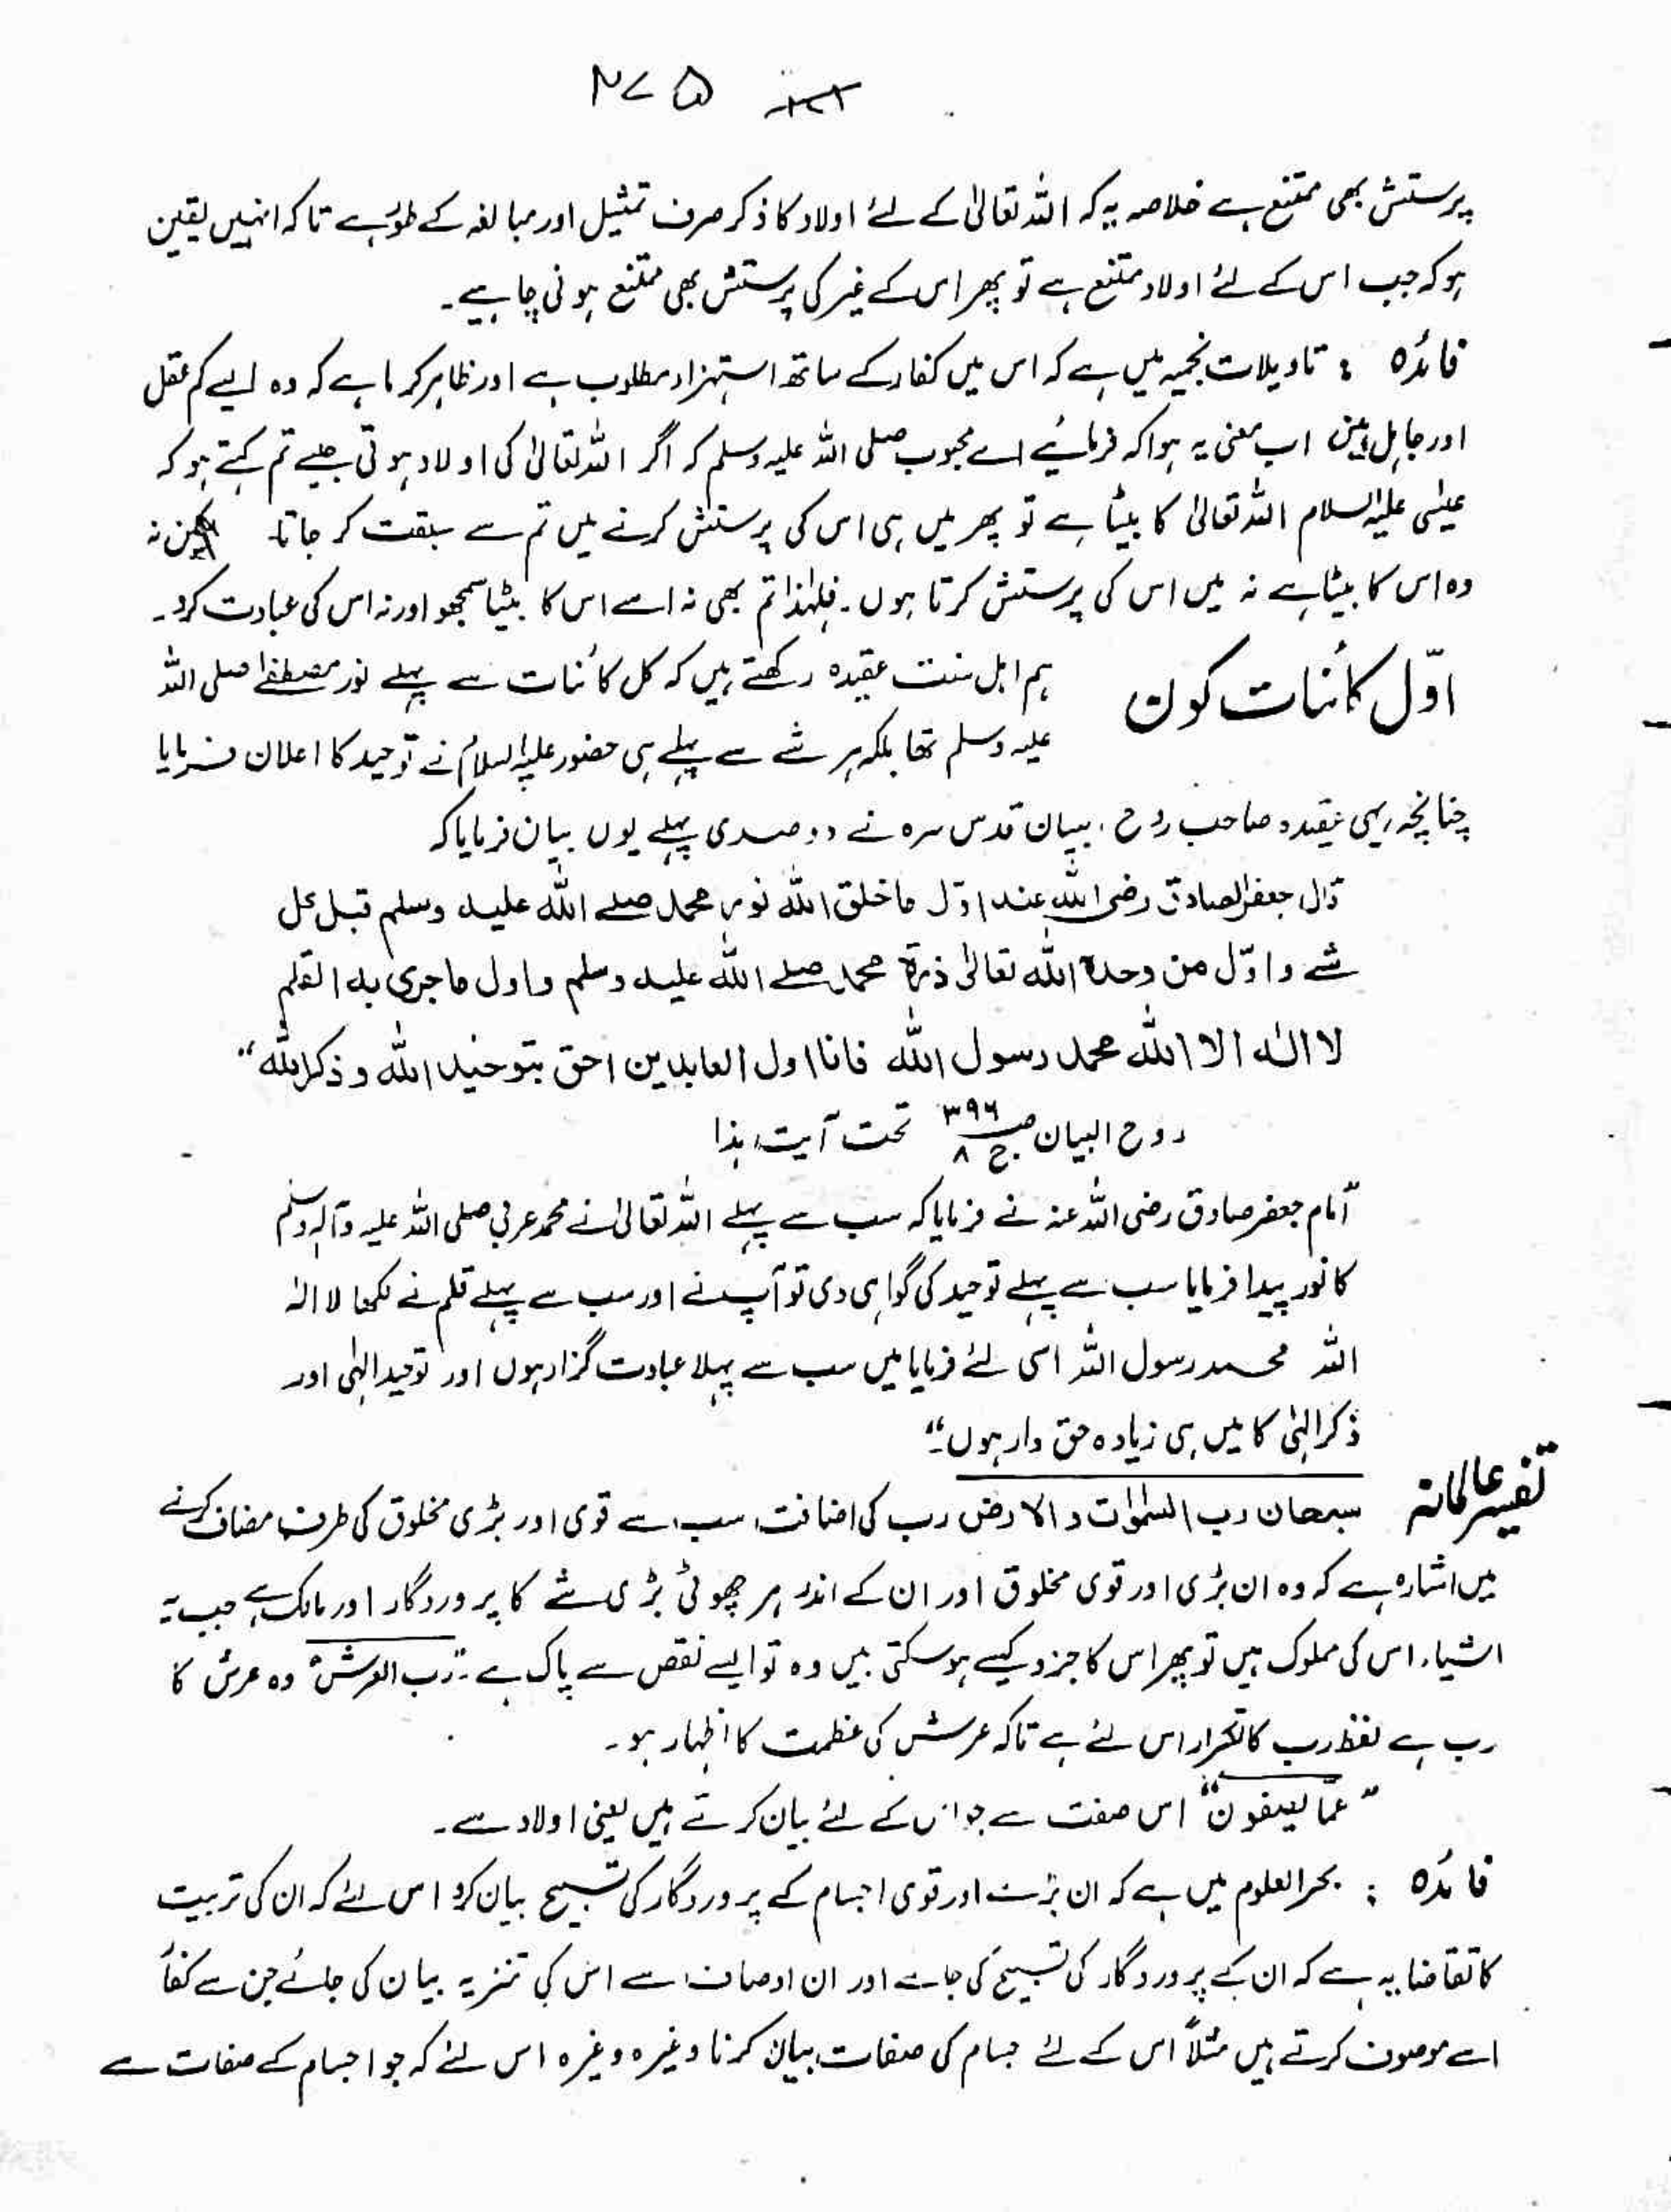 ۴۷۵
پرستش بھی ممتنع ہے خلاصہ یہ کہ اللہ تعالیٰ کے لئے اولاد کا ذکر صرف تمثیل اور مبالغہ کے طور ہے تاکہ انہیں یقین
ہو کہ جب اس کے لئے اولاد ممتنع ہے تو پھر اس کے غیر کی پرستش بھی ممتنع ہونی چاہیے۔
فائدہ : تاویلات نجمیہ میں ہے کہ اس میں کفار کے ساتھ استہزاء مطلوب ہے اور ظاہر کرنا ہے کہ وہ ایسے کم عقل
اور جاہل ہیں اب معنی یہ ہوا کہ فرمائیے اے محبوب صلی اللہ علیہ وسلم کہ اگر اللہ تعالیٰ کی اولاد ہوتی جیسے تم کہتے ہو کہ
عیسٰی علیہ السلام اللہ تعالیٰ کا بیٹا ہے تو پھر میں ہی اس کی پرستش کرنے میں تم سے سبقت کر جاتا لیکن نہ
وہ اس کا بیٹا ہے نہ میں اس کی پرستش کرتا ہوں۔ فلہٰذا تم بھی نہ اسے اس کا بیٹا سمجھو اور نہ اس کی عبادت کرو۔
اوّل کائنات کون
ہم اہل سنت عقیدہ رکھتے ہیں کہ کل کائنات سے پہلے نور مصطفےٰ صلی اللہ
علیہ وسلم تھا بلکہ ہر شے سے پہلے ہی حضور علیہ السلام نے توحید کا اعلان فرمایا
چنانچہ یہی عقیدہ صاحب روح البیان قدس سرہ نے دو صدی پہلے یوں بیان فرمایا کہ
قال جعفر الصادق رضی اللہ عنہ اوّل ما خلق اللہ نور محمد صلے اللہ علیہ وسلم قبل کل
شے و اوّل من وحدہ اللہ تعالیٰ ذرۃ محمد صلے اللہ علیہ وسلم و اول ما جری بہ القلم
لا الٰہ الا اللہ محمد رسول اللہ فانا اول العابدین احق بتوحید اللہ و ذکر اللہ“
روح البیان صـ ۳۹۶ ج ۸ تحت آیت ہذا
”امام جعفر صادق رضی اللہ عنہ نے فرمایا کہ سب سے پہلے اللہ تعالیٰ نے محمد عربی صلی اللہ علیہ وآلہ وسلم
کا نور پیدا فرمایا سب سے پہلے توحید کی گواہی دی تو آپ نے اور سب سے پہلے قلم نے لکھا لا الٰہ
اللہ محمد رسول اللہ اسی لئے فرمایا میں سب سے پہلا عبادت گزار ہوں اور توحید الٰہی اور
ذکر الٰہی کا میں ہی زیادہ حق دار ہوں۔“
تفسیر عالمانہ
سبحان رب السمٰوٰت و الارض رب کی اضافت سب سے قوی اور بڑی مخلوق کی طرف مضاف کرنے
میں اشارہ ہے کہ وہ ان بڑی اور قوی مخلوق اور ان کے اندر ہر چھوٹی بڑی شے کا پروردگار اور مالک ہے جب یہ
اشیاء اس کی مملوک ہیں تو پھر اس کا جزو کیسے ہو سکتی ہیں وہ تو ایسے نقص سے پاک ہے۔ ”رب العرش“ وہ عرش کا
رب ہے لفظ رب کا تکرار اس لئے ہے تاکہ عرش کی عظمت کا اظہار ہو۔
”عمّا یصفون“ اس صفت سے جو اس کے لئے بیان کرتے ہیں یعنی اولاد سے۔
فائدہ : بحر العلوم میں ہے کہ ان بڑے اور قوی اجسام کے پروردگار کی تسبیح بیان کرو اس لئے کہ ان کی تربیت
کا تقاضا یہ ہے کہ ان کے پروردگار کی تسبیح کی جائے اور ان اوصاف سے اس کی تنزیہ بیان کی جائے جن سے کفار
اسے موصوف کرتے ہیں مثلاً اس کے لئے جسام کی صفات بیان کرنا وغیرہ وغیرہ اس لئے کہ جو اجسام کے صفات سے